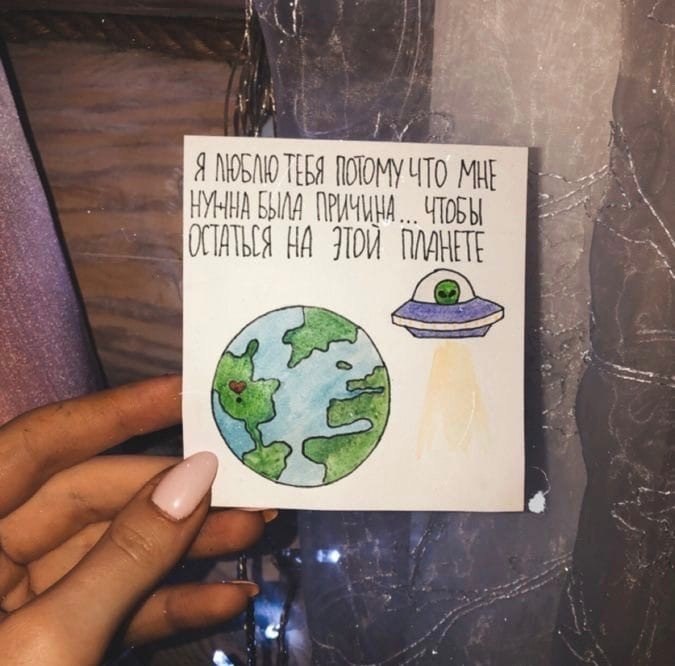 Я ЛЮБЛЮ ТЕБЯ ПОТОМУ ЧТО МНЕ
НУЖНА БЫЛА ПРИЧИНА... ЧТОБЫ
ОСТАТЬСЯ НА ЭТОЙ ПЛАНЕТЕ